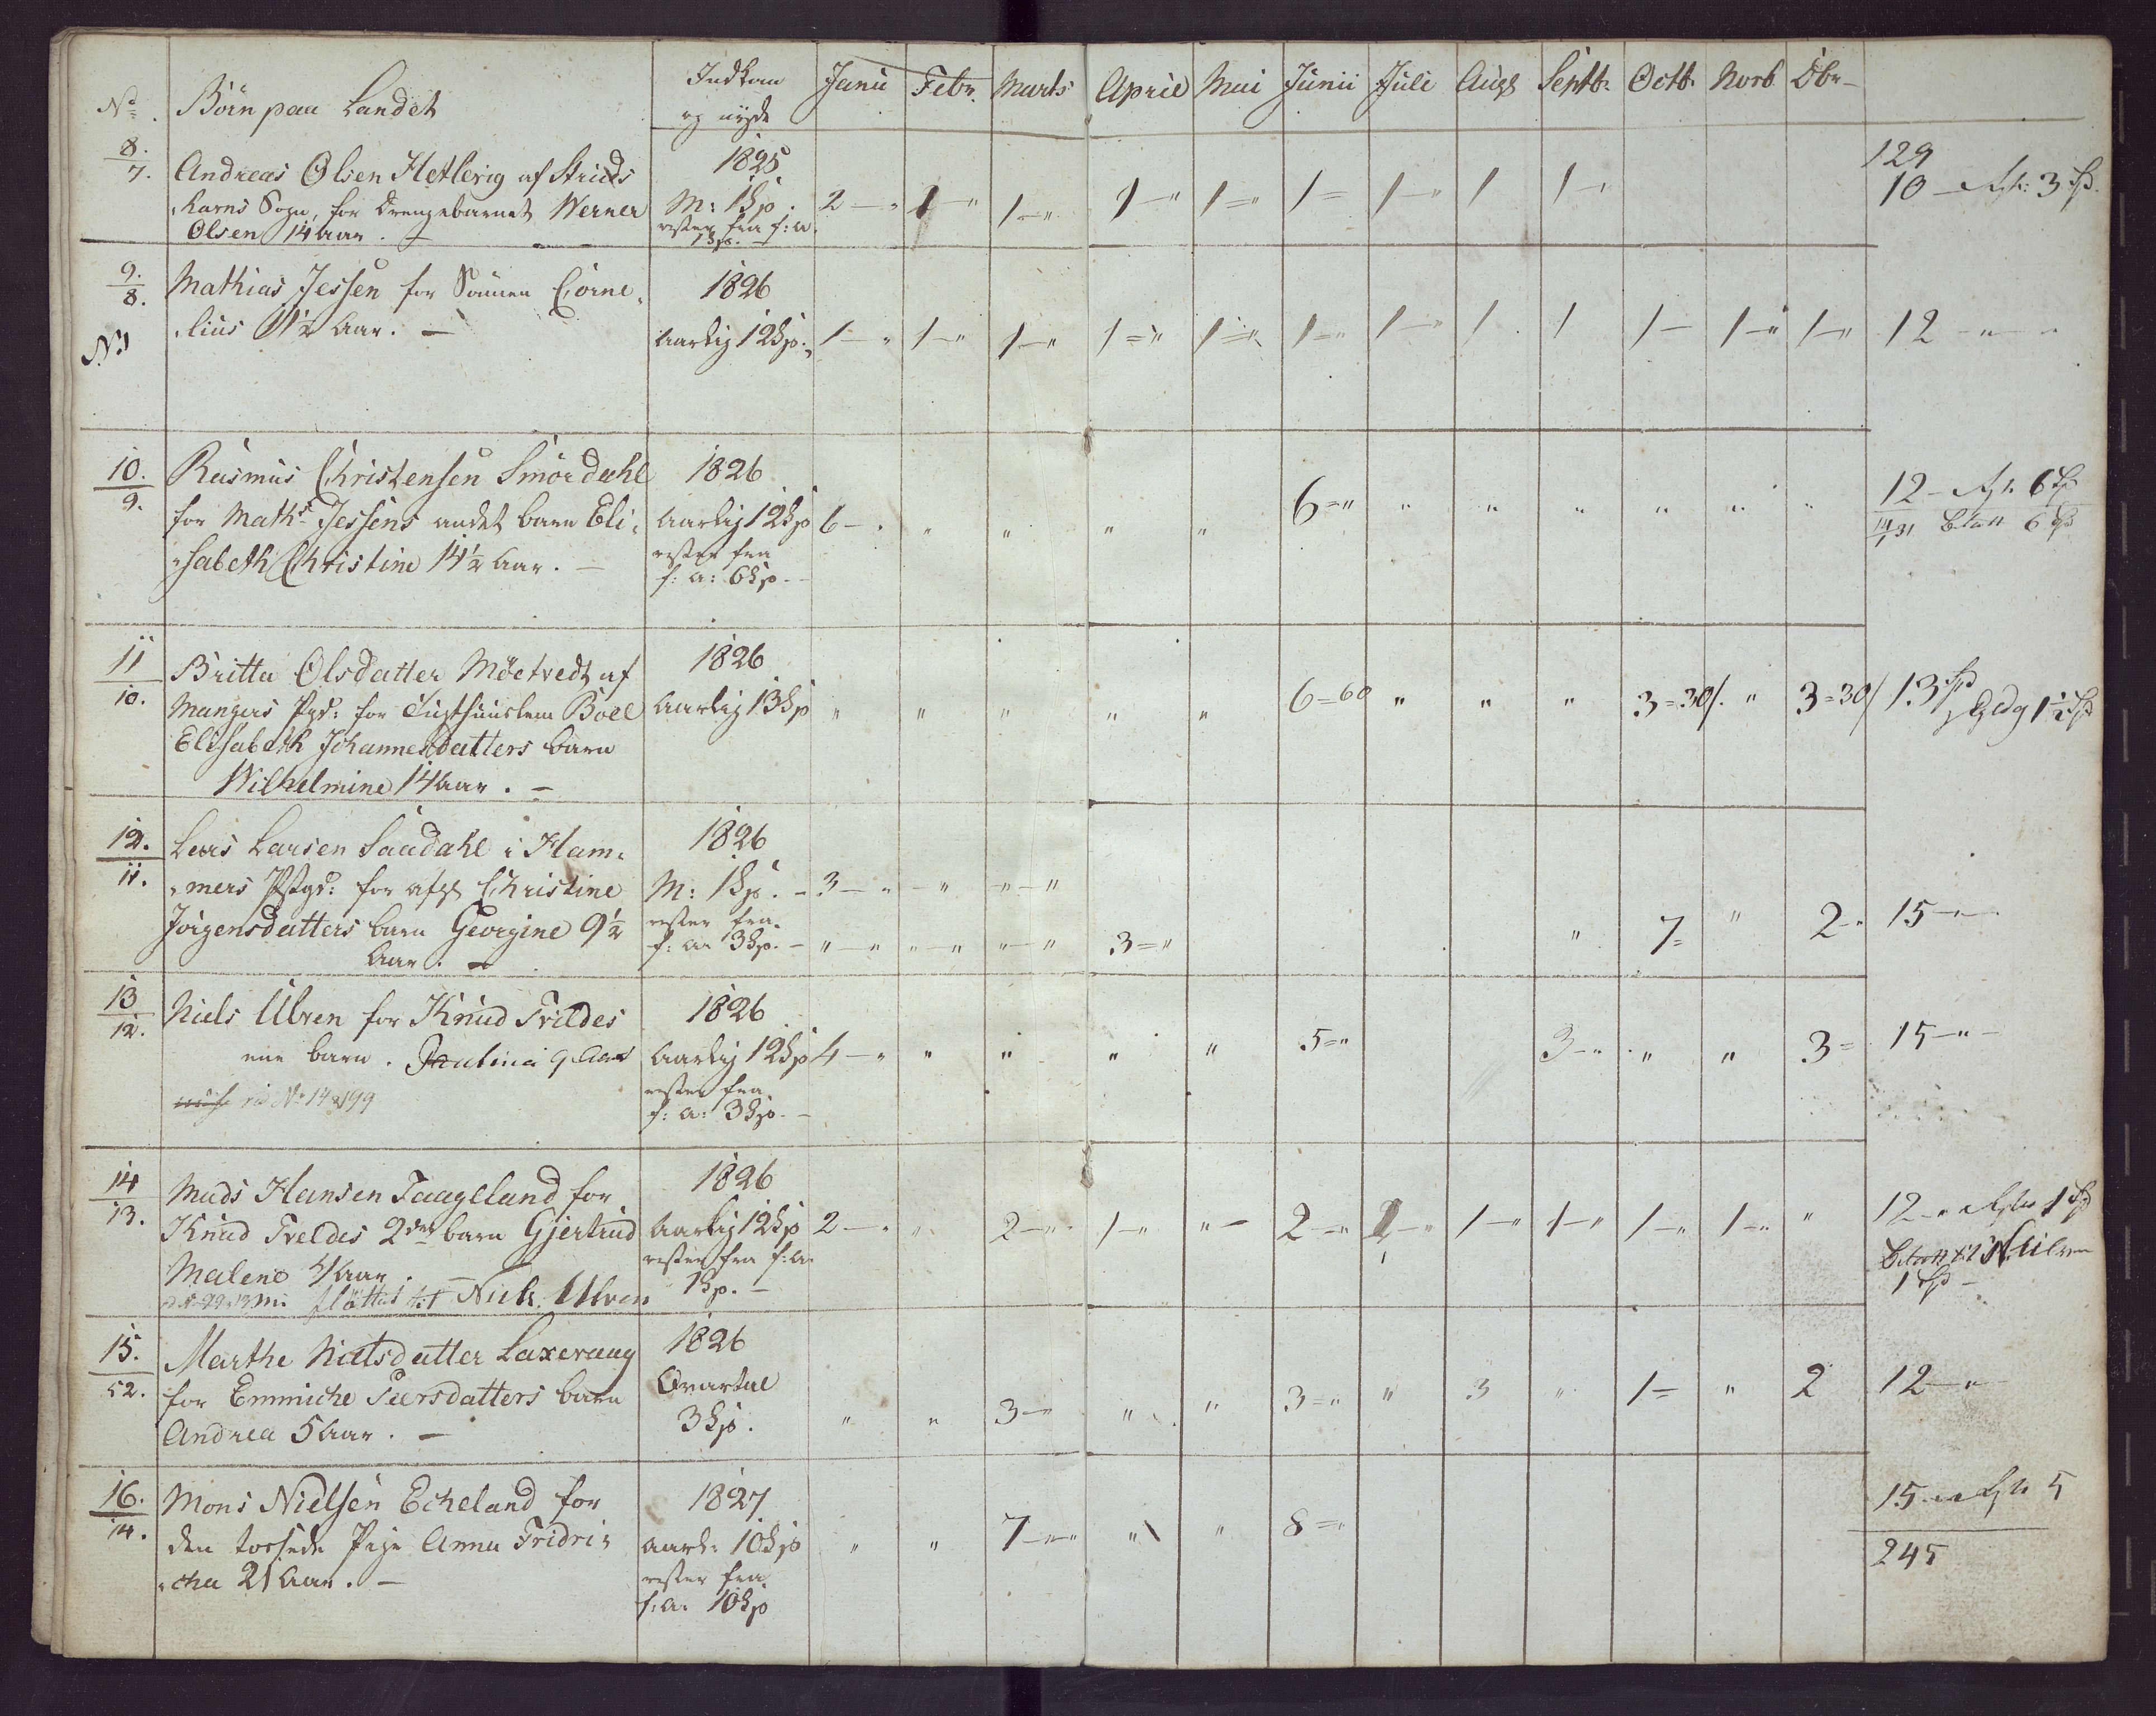 No. Börn paa Landet Indkom og nyde Janu Febr. Marts April Mai Junii Juli Augs Septb. Octb. Novb. Dbr
129
8./7. Andreas Olsen Hetlevig af Strids 1825
harns Sogn, for Drengebarnet Werner M: 1 Sp. 2 — " 1 — " 1 — " 1 — " 1 = " 1 = 1 — " 1 1 — 10 — 3 Sp.
Olsen 14 Aar. — rester fra f: a. 1 Sp.
9./8. Mathias Jessen for Sönnen Corne, 1826
No. 1 lius 11½ Aar. — Aarlig 12 Sp. 1 — " 1 — " 1 — " 1 = " 1 = " 1 = " 1 — " 1 1 1 — 1 — " 1 — " 12 — " — "
10./9. Rasmus Christensen Smördahl 1826
for Maths. Jessens andet barn Eli, Aarlig 12 Sp 6 — " " " " " 6 = " " " " " " " 12 — 6 Sp
sabeth Christine 14½ Aar. — rester fra 6 Sp
f: a: 6 Sp. —
11/10. Britta Olsdatter Möetvedt af 1826
Mangers Pgd: for Tugthuuslem Boel Aarlig 13 Sp " " " " " 6 = 60 " " " 3 = 30/. " 3 = 30/ 13 Sp 1½ Sp
Elisabeth Johannesdatters barn
Wilhelmine 14 Aar. —
12./11. Lars Larsen Saudahl i Ham, 1826
mers Pstgd: for afg Christine M: 1 Sp. — 3 — " — " " — "
Jörgensdatters barn Georgine 9½ rester fra
Aar. — f: a. 3 Sp. — " — " " — " " — " 3 = " " 7 = " 2 — " 15 — " —
13/12. Niels Ulven for Knud Trildes 1826
ene barn. Paulina 9 Aar Aarlig 12 Sp 4 — " " " " " 5 = " 3 — " " " 3 = 15 — " —
No. 14 199 rester fra
f: a: 3 Sp. —
14/13. Mads Hansen Taageland for 1826
Knud Treldes 2det barn Gjertrud Aarlig 12 Sp 2 — " " 2 — " 1 — " " — 2 — " 1 — " 1 — " 1 — " 1 — " 1 — " " 12 — " 1 Sp
Malene 4 Aar. rester fra f: a.
flöttet til Niels Ulven 1 Sp. — 1 Sp —
15./52. Marthe Nielsdatter Laxevaag 1826
for Emmiche Peersdatters barn Qvartal
Andrea 5 Aar. — 3 Sp. " " 3 — " " " 3 = " " 3 " 1 = " 2 12 — " —
16./14. Mons Nielsen Echeland for 1827
den tossede Pige Anna Fridri, aarl. 10 Sp " " 7 — " — " " " 8 = " 15 — " 5
cha 21 Aar. — rester fra 245
f: a: 10 Sp